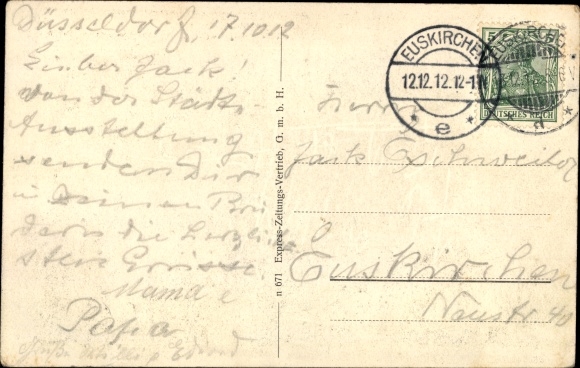 Düsseldorf, 17.10.12
Lieber Jack!
Von der Städte-
Ausstellung
senden Dir
u Deinen Brü
dern die herzlich
sten Grüsse
Mama u
Papa
Grüße
n 671 Express-Zeitungs-Vertrieb, G. m. b. H.
EUSKIRCHEN
12.12.12.12-1
* e *
EUSKIRCHEN
DEUTSCHES REICH
5
Herrn
Jack Eschweiler
Euskirchen
Neustr 40